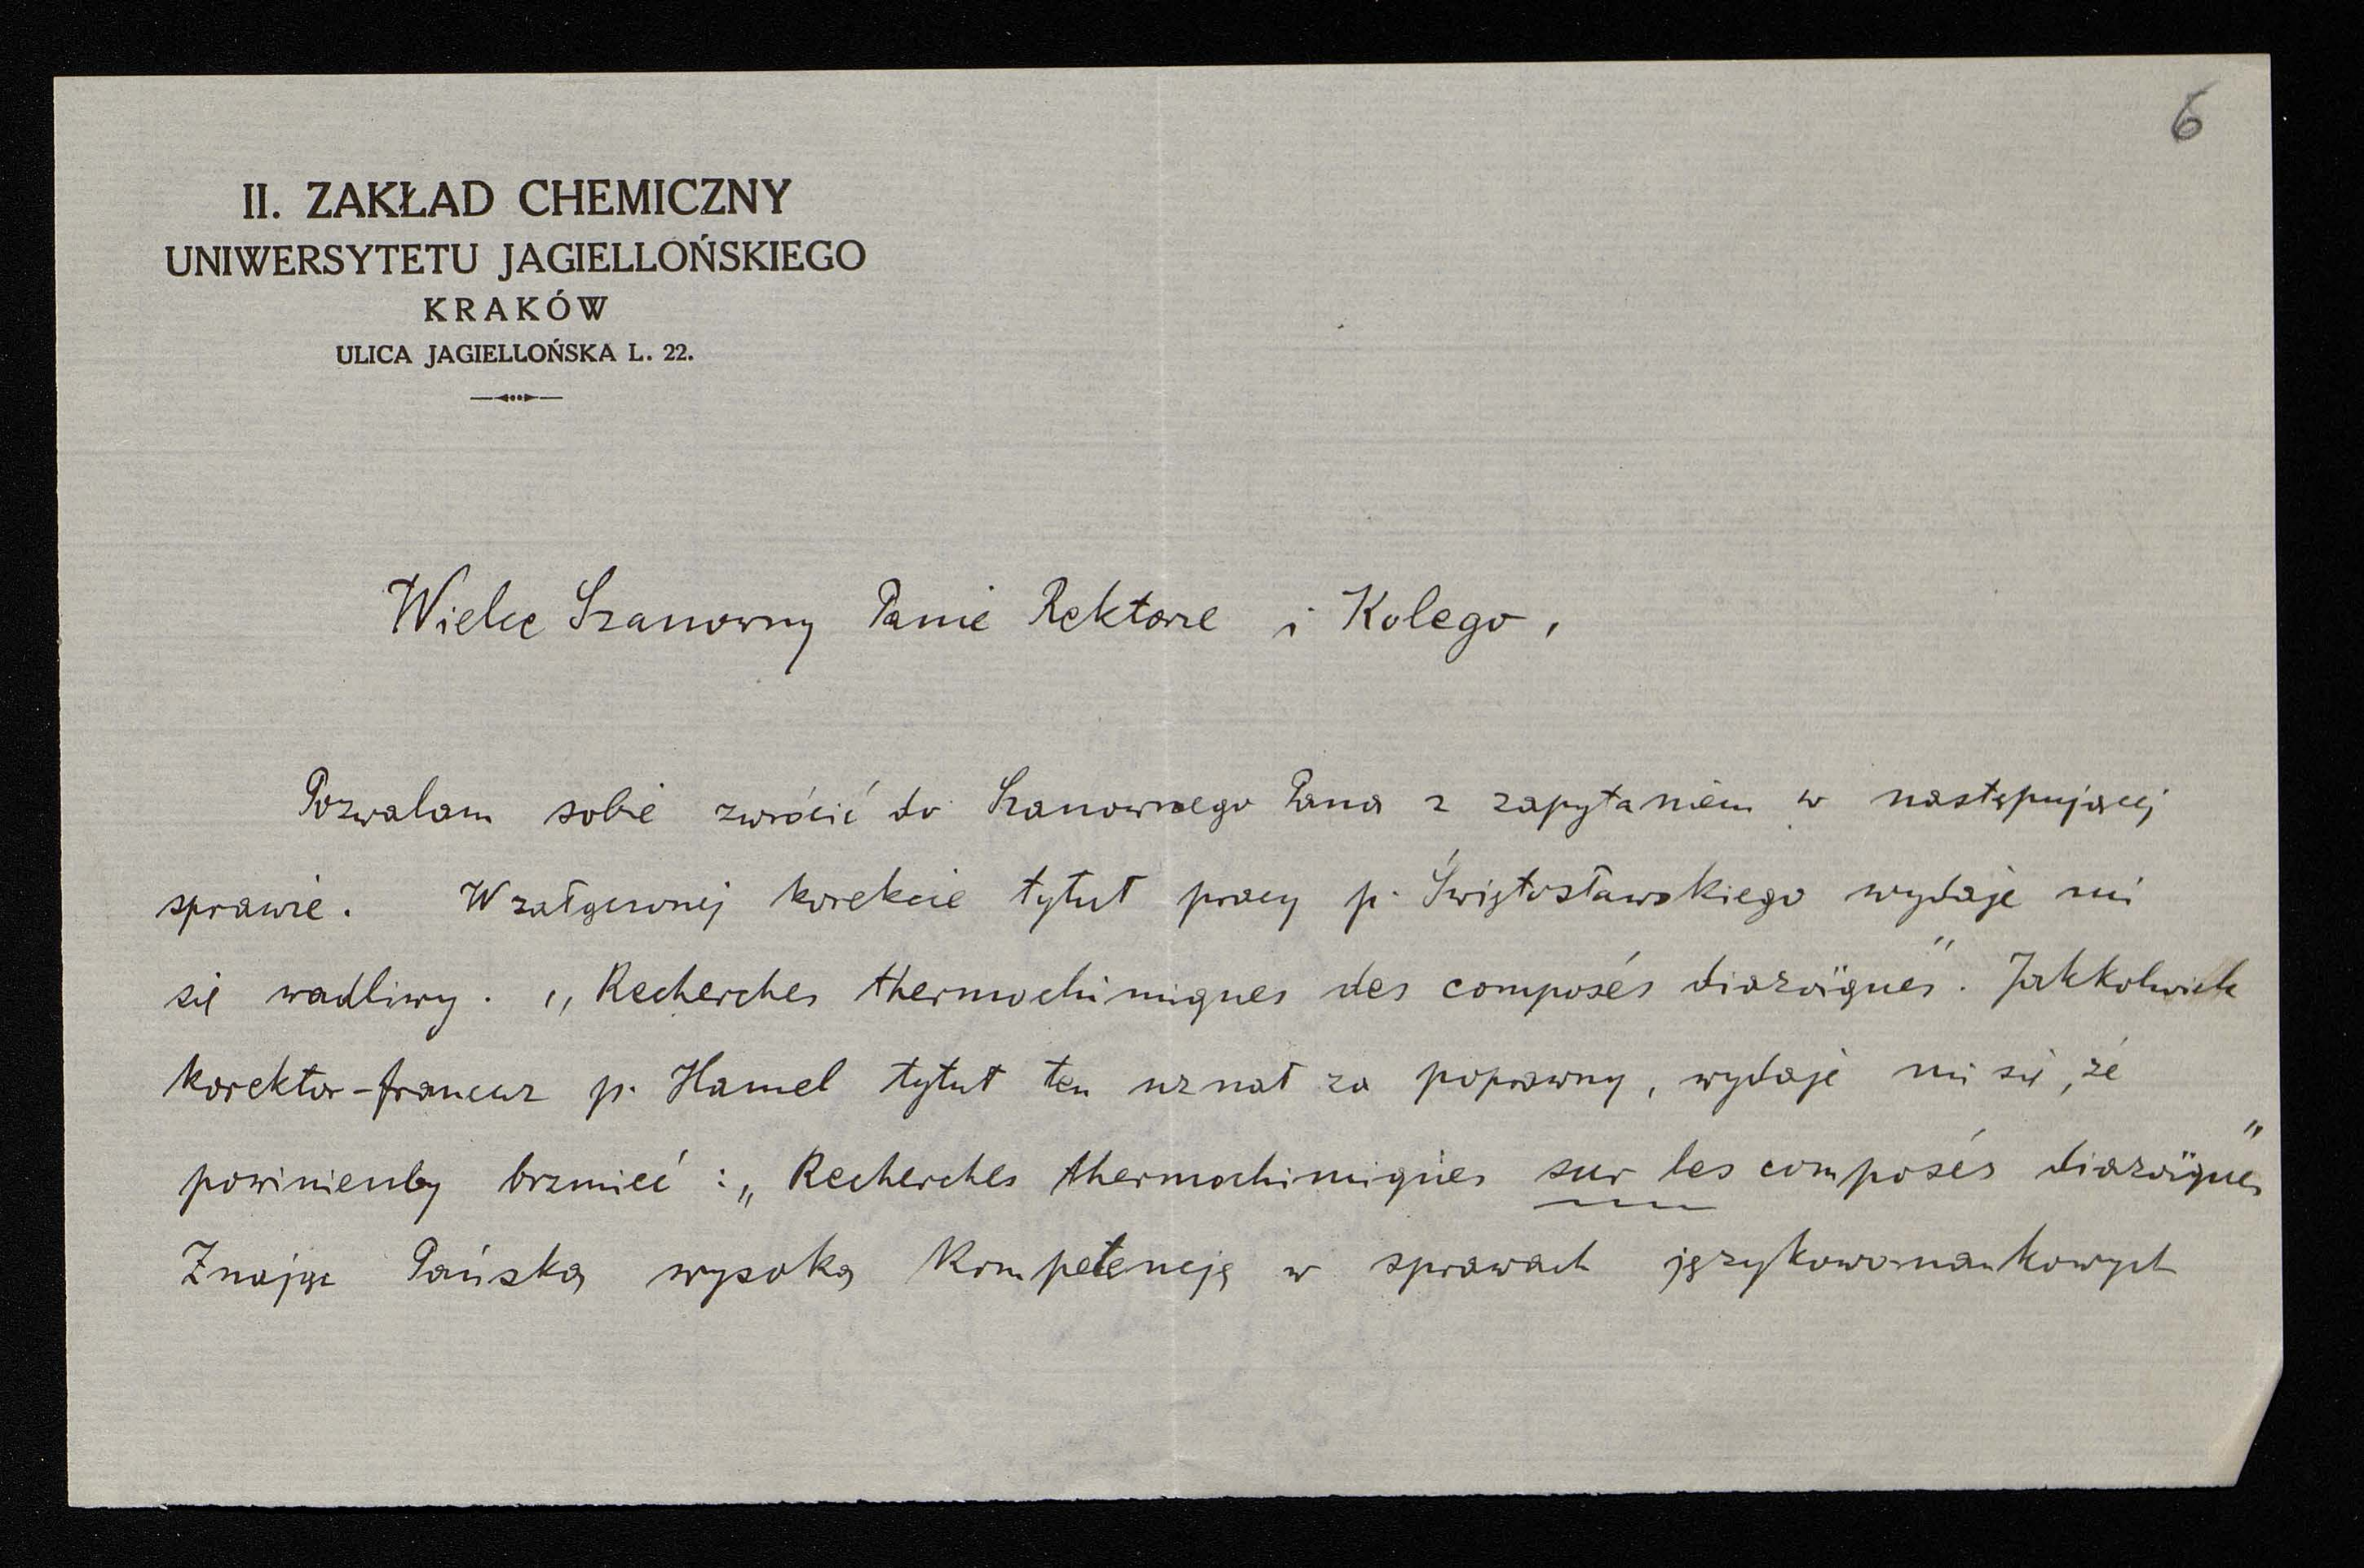 6
II. ZAKŁAD CHEMICZNY
UNIWERSYTETU JAGIELLOŃSKIEGO
KRAKÓW
ULICA JAGIELLOŃSKA L. 22.
Wielce Szanowny Panie Rektorze i Kolego,
Pozwalam sobie zwrócić do Szanownego Pana z zapytaniem w następującej
sprawie. W załączonej korekcie tytuł pracy p. Świętosławskiego wydaje mi
się wadliwy. „Recherches thermochimiques des composés diazoïques". Jakkolwiek
korektor-francuz p. Hamel tytuł ten uznał za poprawny, wydaje mi się, że
powinienby brzmieć: „Recherches thermochimiques sur les composés diazoïques"
Znając Pańską wysoką kompetencję w sprawach językowonaukowych